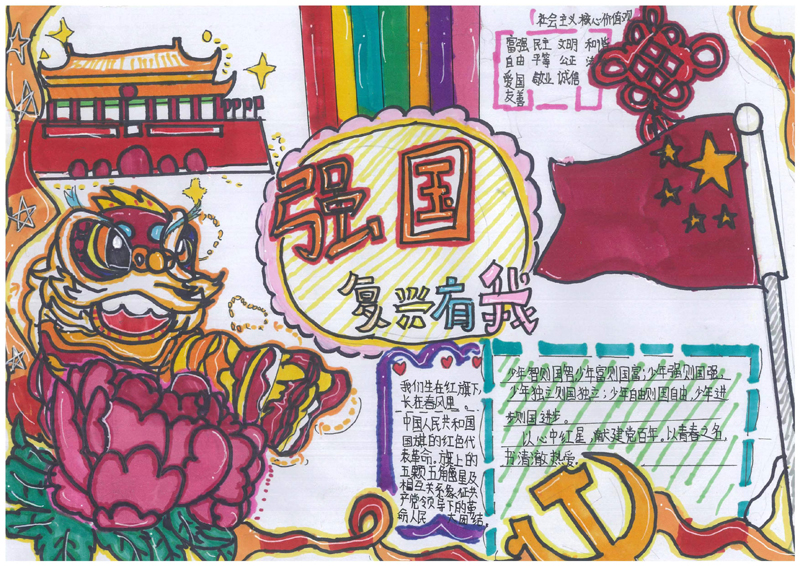 社会主义核心价值观
富强 民主 文明 和谐
自由 平等 公正 法
爱国 敬业 诚信
友善
强国
复兴有我
我们生在红旗下,
长在春风里。
中国人民共和国
国旗的红色代
表革命,旗上的
五颗五角星及
相互关系象征共
产党领导下的革
命人民大团结
少年智则国智,少年富则国富;少年强则国强、
少年独立则国独立;少年自由则国自由,少年进
步则国进步。
以心中红星,献建党百年,以青春之名,
书清澈热爱。